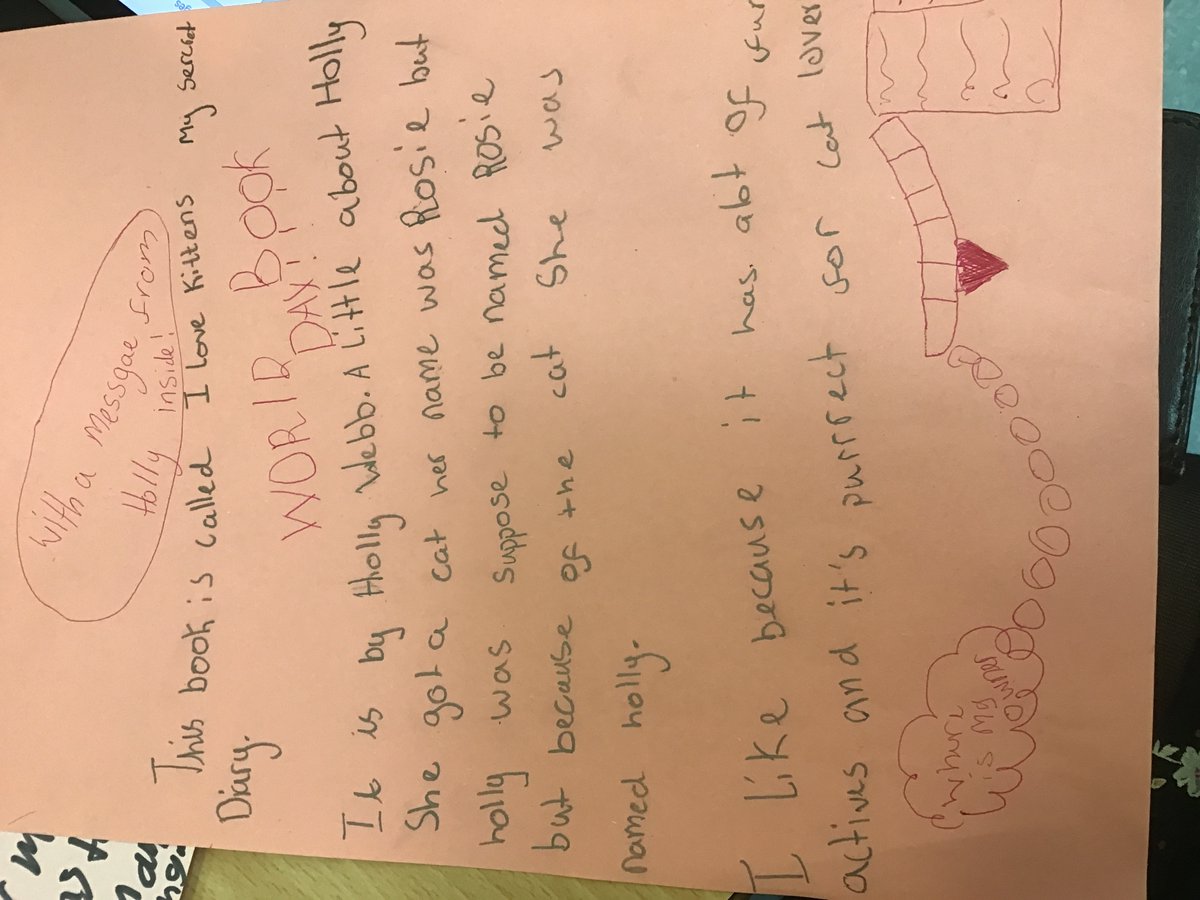 With a messgae from
Holly inside!
This book is called I Love Kittens My sercret
Diary.
WORlD BOOK
DAY!
It is by Holly Webb. A Little about Holly
She got a cat her name was Rosie but
holly was suppose to be named Rosie
but because of the cat She was
named holly.
I Like because it has alot of fun
actives and it's purrect for cat lover
where
is my
owner